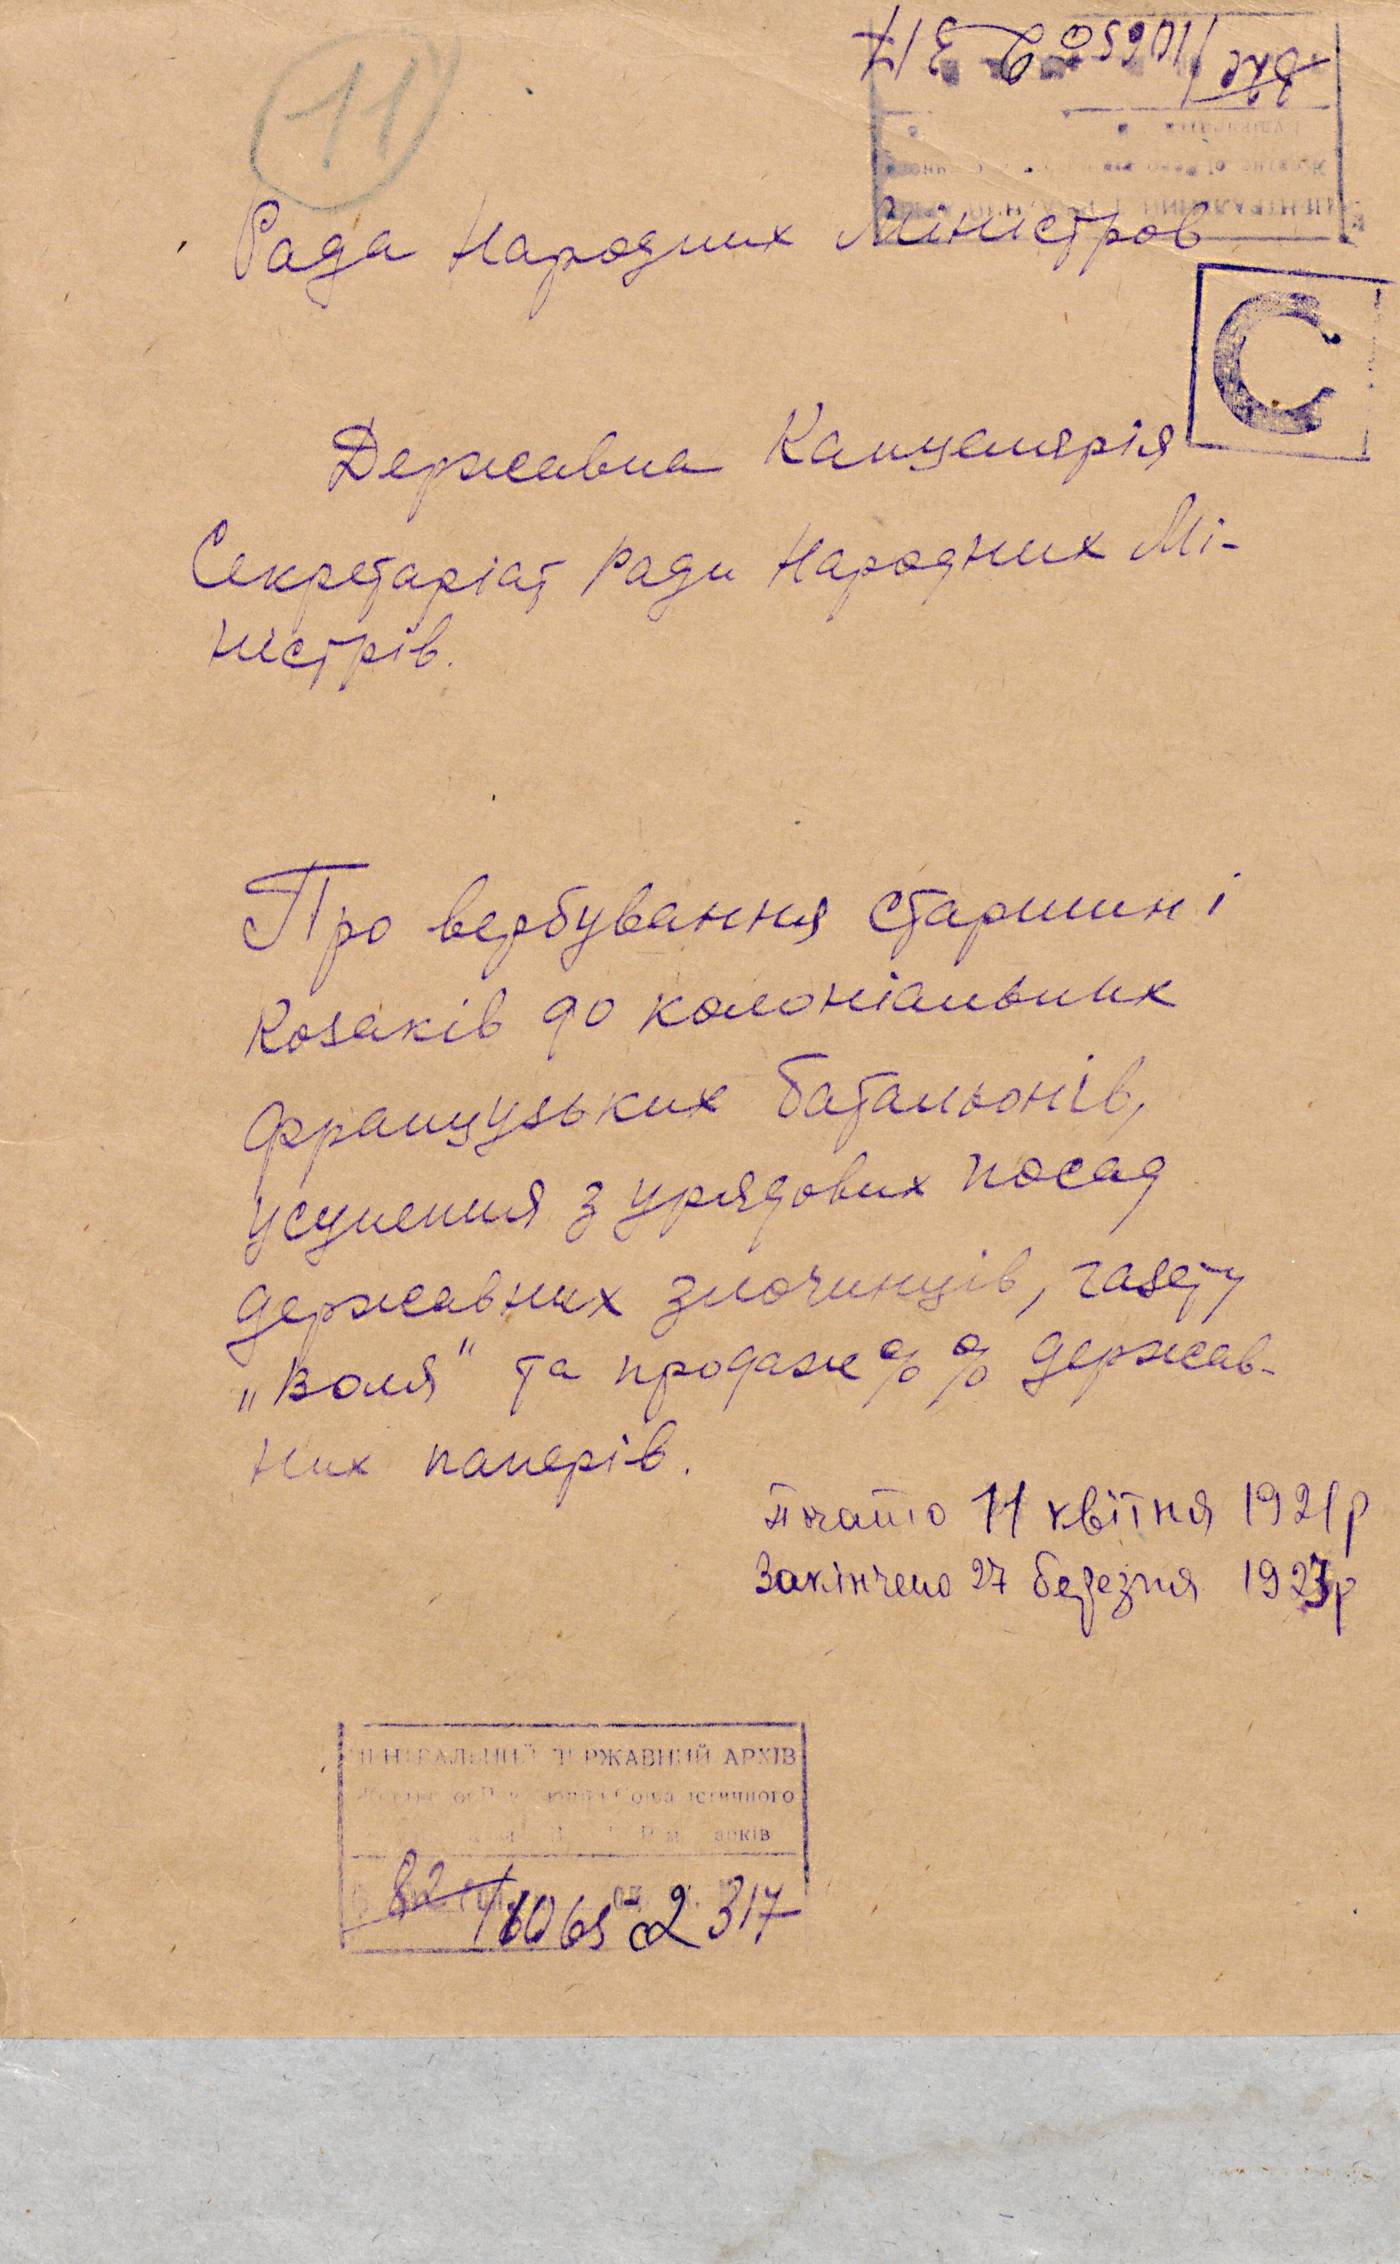 11
Рада Народних Міністров
С
Державна Канцелярія
Секретаріат Ради Народних Мі-
ністрів.
Про вербування старшин і
козаків до колоніальних
французьких батальонів,
усунення з урядових посад
державних злочинців, газету
„Воля" та продаж %% держав-
них паперів.
Почато 11 квітня 1921 р
Закінчено 27 березня 1923 р
ЦЕНТРАЛЬНИЙ ДЕРЖАВНИЙ АРХІВ
1065 2 317